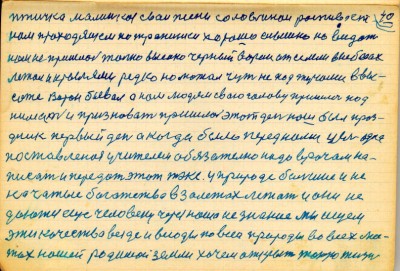 40
птичка маленькая свои песни соловьиная распивает
нам проходящем по тропинки хорошо слышно но видат
нам не пришлося только высоко черный ворон от земли в небесах
летал и крыльями редко помахал чуть не под тучами в вы-
соте Ворон бывал а нам людям свою голову пришлося под
нимать и признавать пришлося этот ден наш был праз-
дник первый ден а когда было перед нами цел
поставлено учителем обязательно надо врачам на-
писат и передат этот тэкс. у природе большие и не
початые богатства в залежах лежат и они не
даются еще человеку через наше не знание мы ищем
эти качества везде и всюды по всей природы во всех мес-
тах нашей родимой земли хочем открыть